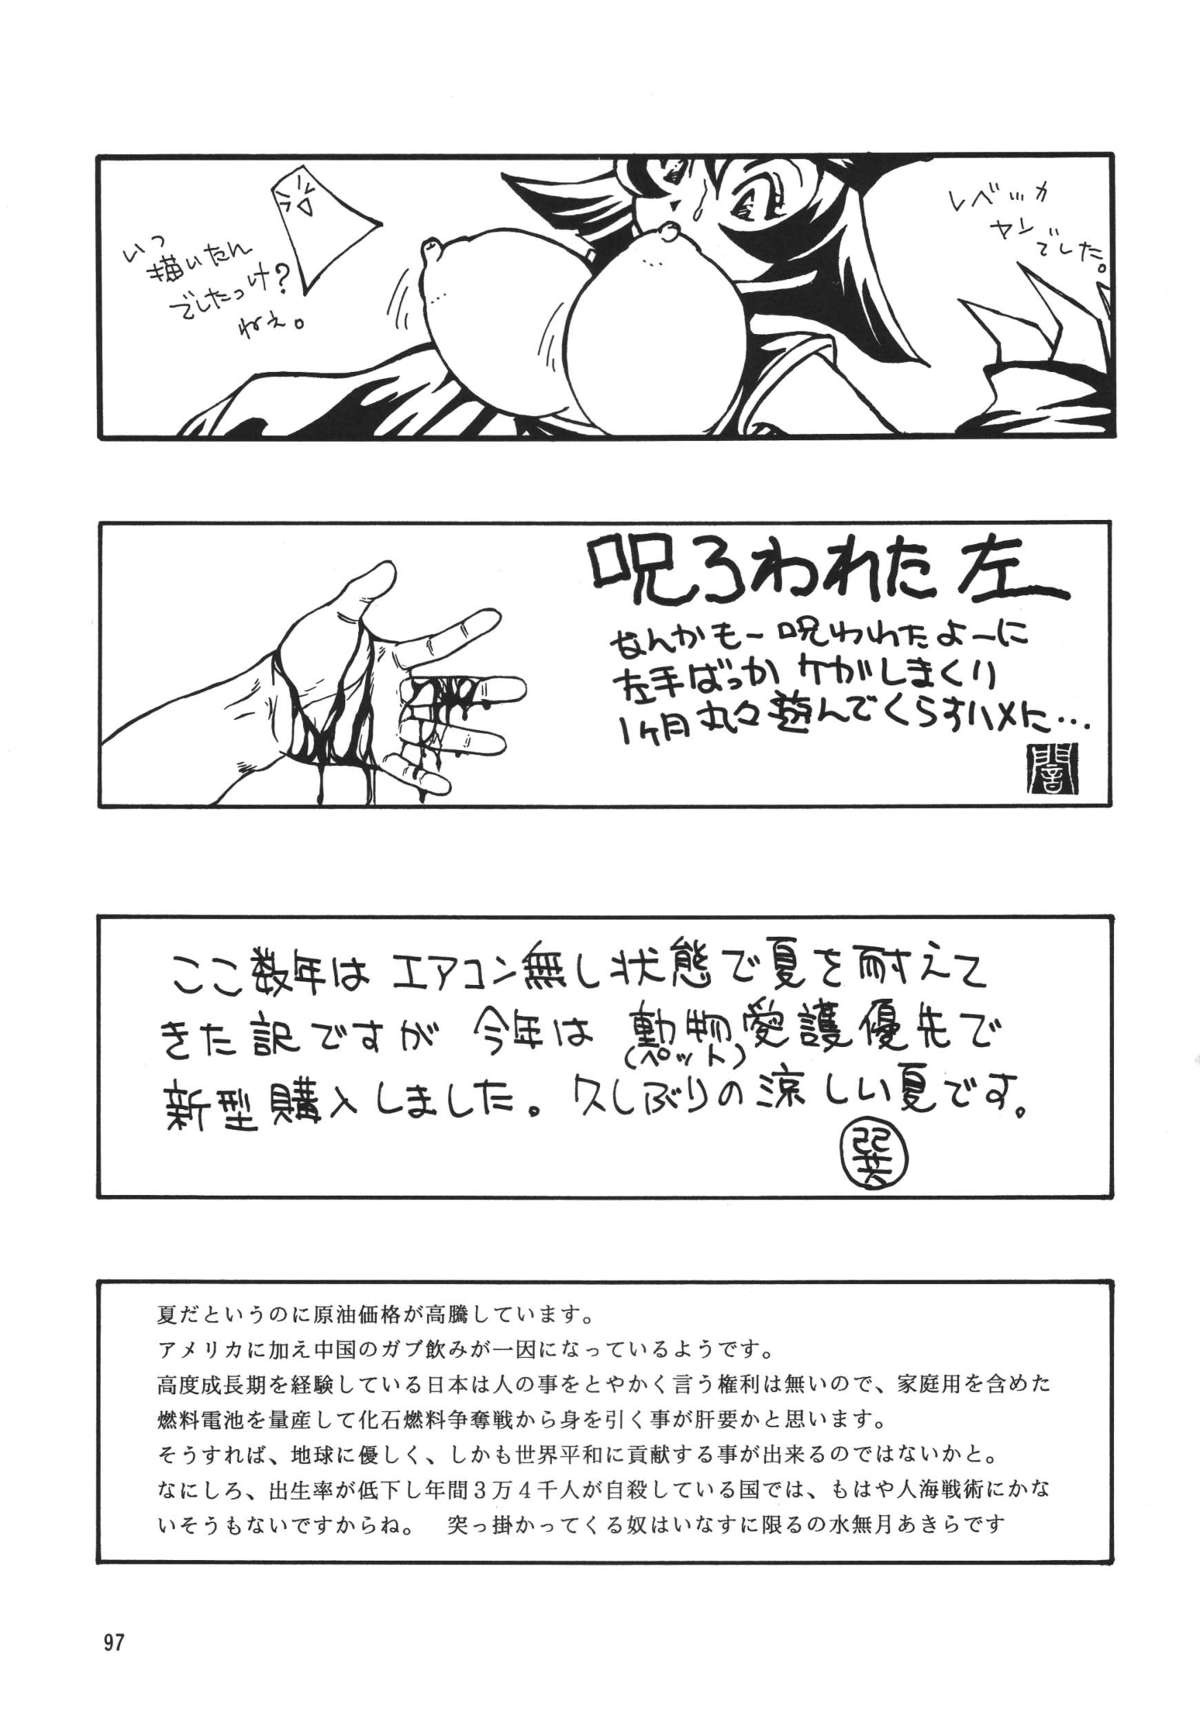 レベッカ
ヤングでした。
いつ
描いたん
でしたっけ?
ねぇ。
呪ろわれた左
なんかもー呪われたよーに
左手ばっかケガしまくり
1ヶ月丸々遊んでくらすハメに…
闇
ここ数年はエアコン無し状態で夏を耐えて
きた訳ですが今年は動物愛護優先で
(ペット)
新型購入しました。久しぶりの涼しい夏です。
巽
夏だというのに原油価格が高騰しています。
アメリカに加え中国のガブ飲みが一因になっているようです。
高度成長期を経験している日本は人の事をとやかく言う権利は無いので、家庭用を含めた
燃料電池を量産して化石燃料争奪戦から身を引く事が肝要かと思います。
そうすれば、地球に優しく、しかも世界平和に貢献する事が出来るのではないかと。
なにしろ、出生率が低下し年間3万4千人が自殺している国では、もはや人海戦術にかな
いそうもないですからね。　突っ掛かってくる奴はいなすに限るの水無月あきらです
97